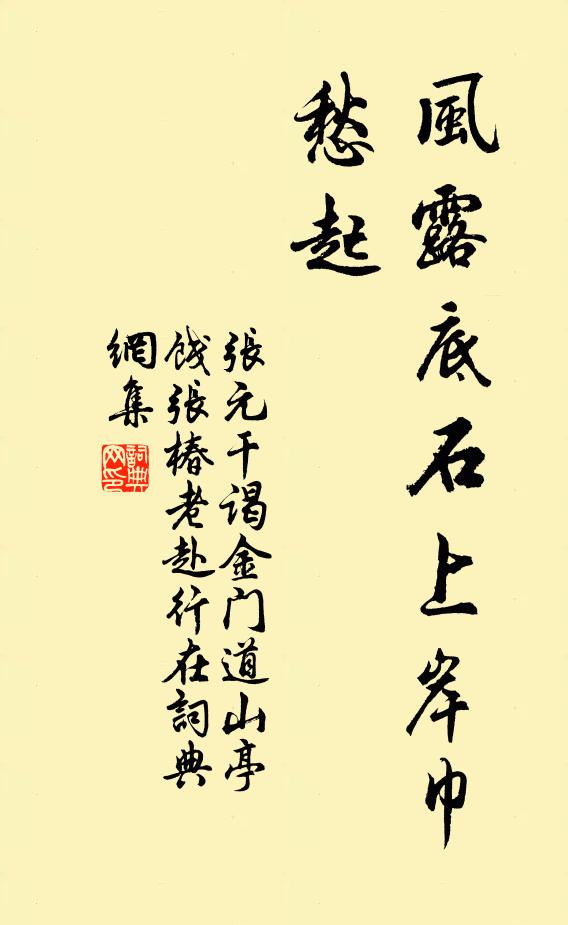 風露底石上岸巾
愁起
張元干谒金门道山亭
餞張椿老赴行在詞典
網集
詞典
网印